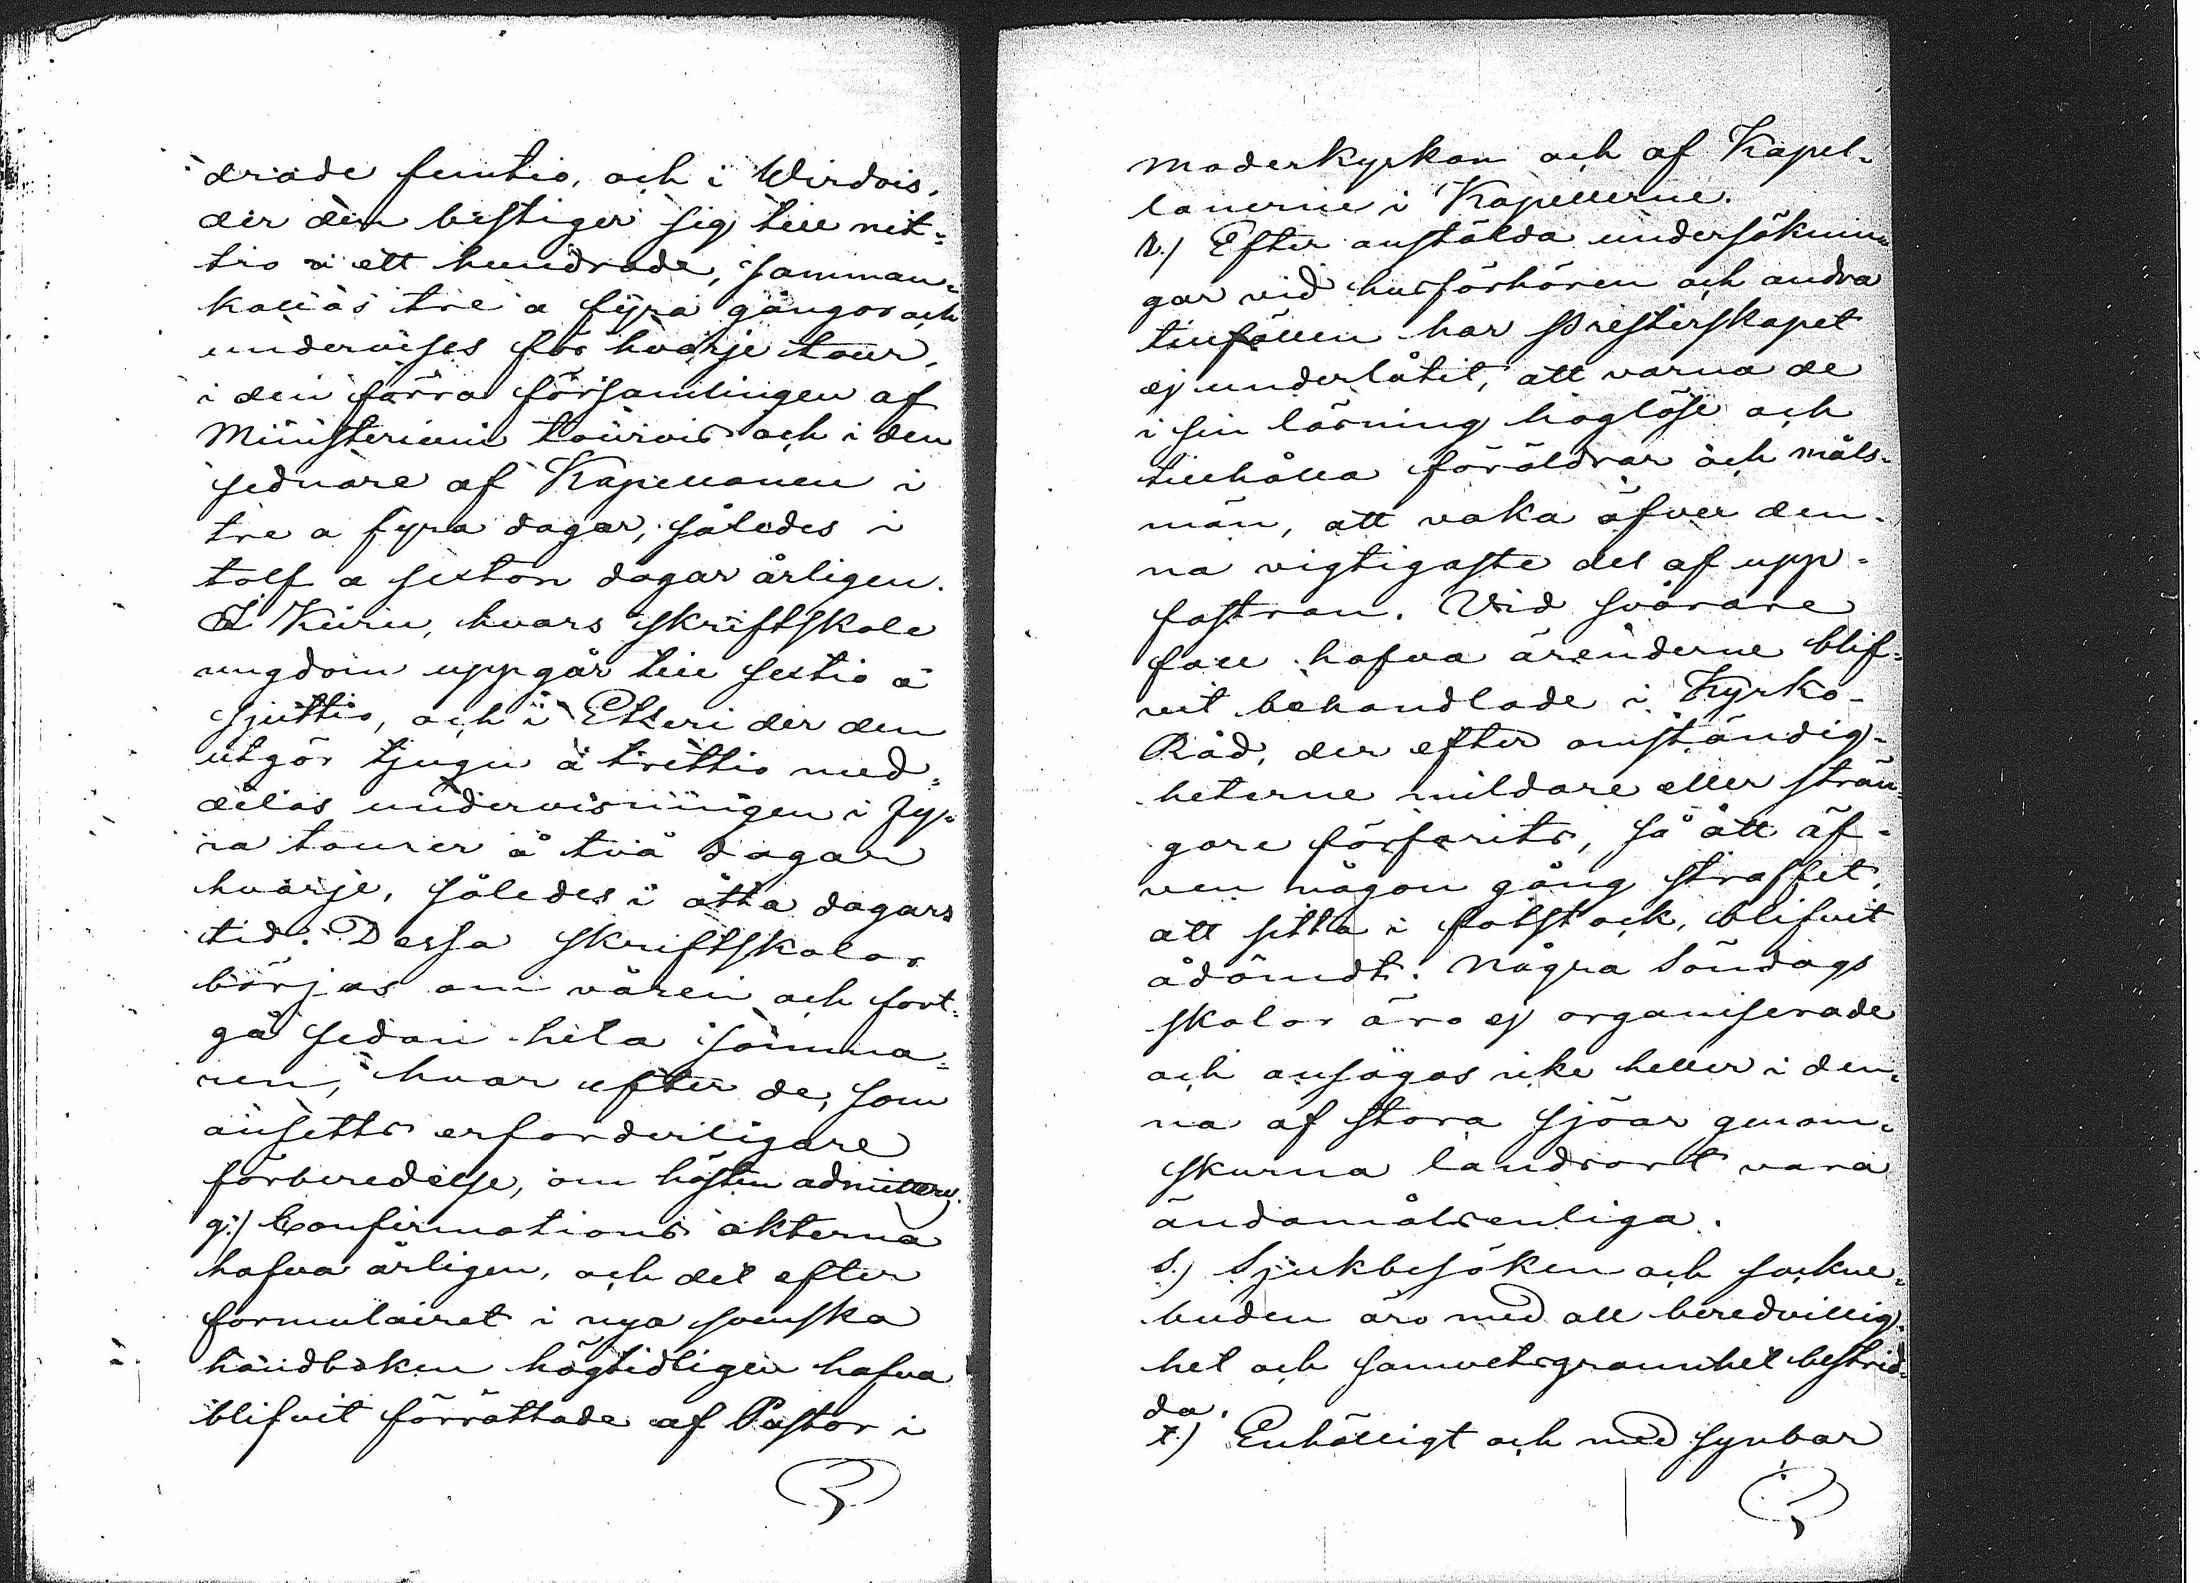 drade femtio, och i Wirdois,
der den bestiger sig till nit=
tio à ett hundrade, samman=
kallas tre a fyra gångor och
undervises för hvarje tour,
i den förra församlingen af
Ministerium tourvis och i den
sednare af Kapellanen i
tre a fyra dagar, således i
tolf a sexton dagar årligen.
I Kuru, hvars skriftskole
ungdom uppgår till sextio à
sjuttio, och i Etseri der den
utgör tjugu à trettio med=
delas undervisningen i fy=
ra tourer à två dagar
hvarje, således i åtta dagars
tid. Dessa skriftskolor
börjas om våren och fort=
gå sedan hela somma=
ren, hvarefter de, som
ansetts erforderligare
förberedelse, om hösten admitteras.
q.) Confirmations akterna
hafva årligen, och det efter
formulairet i nya svenska
handboken högtidligen hafva
blifvit förrättade af Pastor i
moderkyrkan och af Kapel=
lanerne i Kapellerne.
r.) Efter anstälda undersöknin=
gar vid husförhören och andra
tillfällen har Presterskapet
ej underlåtit, att varna de
i sin läsning höglöse och
tillhålla föräldrar och måls=
män, att vaka öfver den=
na vigtigaste del af upp=
fostran. Vid svårare
fall hafva ärenderne blif=
vit behandlade i Kyrko=
Råd, der efter omständig=
heterne mildare eller strän=
gare förfarits, så att äf=
ven någon gång straffet,
att sitta i fotstock, blifvit
ådömdt. Några Söndags
skolor äro ej organiserade
och ansågos icke heller i den=
na af stora sjöar genom=
skurna landsort vara
ändamålsenliga.
s.) Sjukbesöken och sockne=
buden äro med all beredvillig=
het och samvetsgrannhet bestrid=
da.
t.) Enhälligt och med synbar